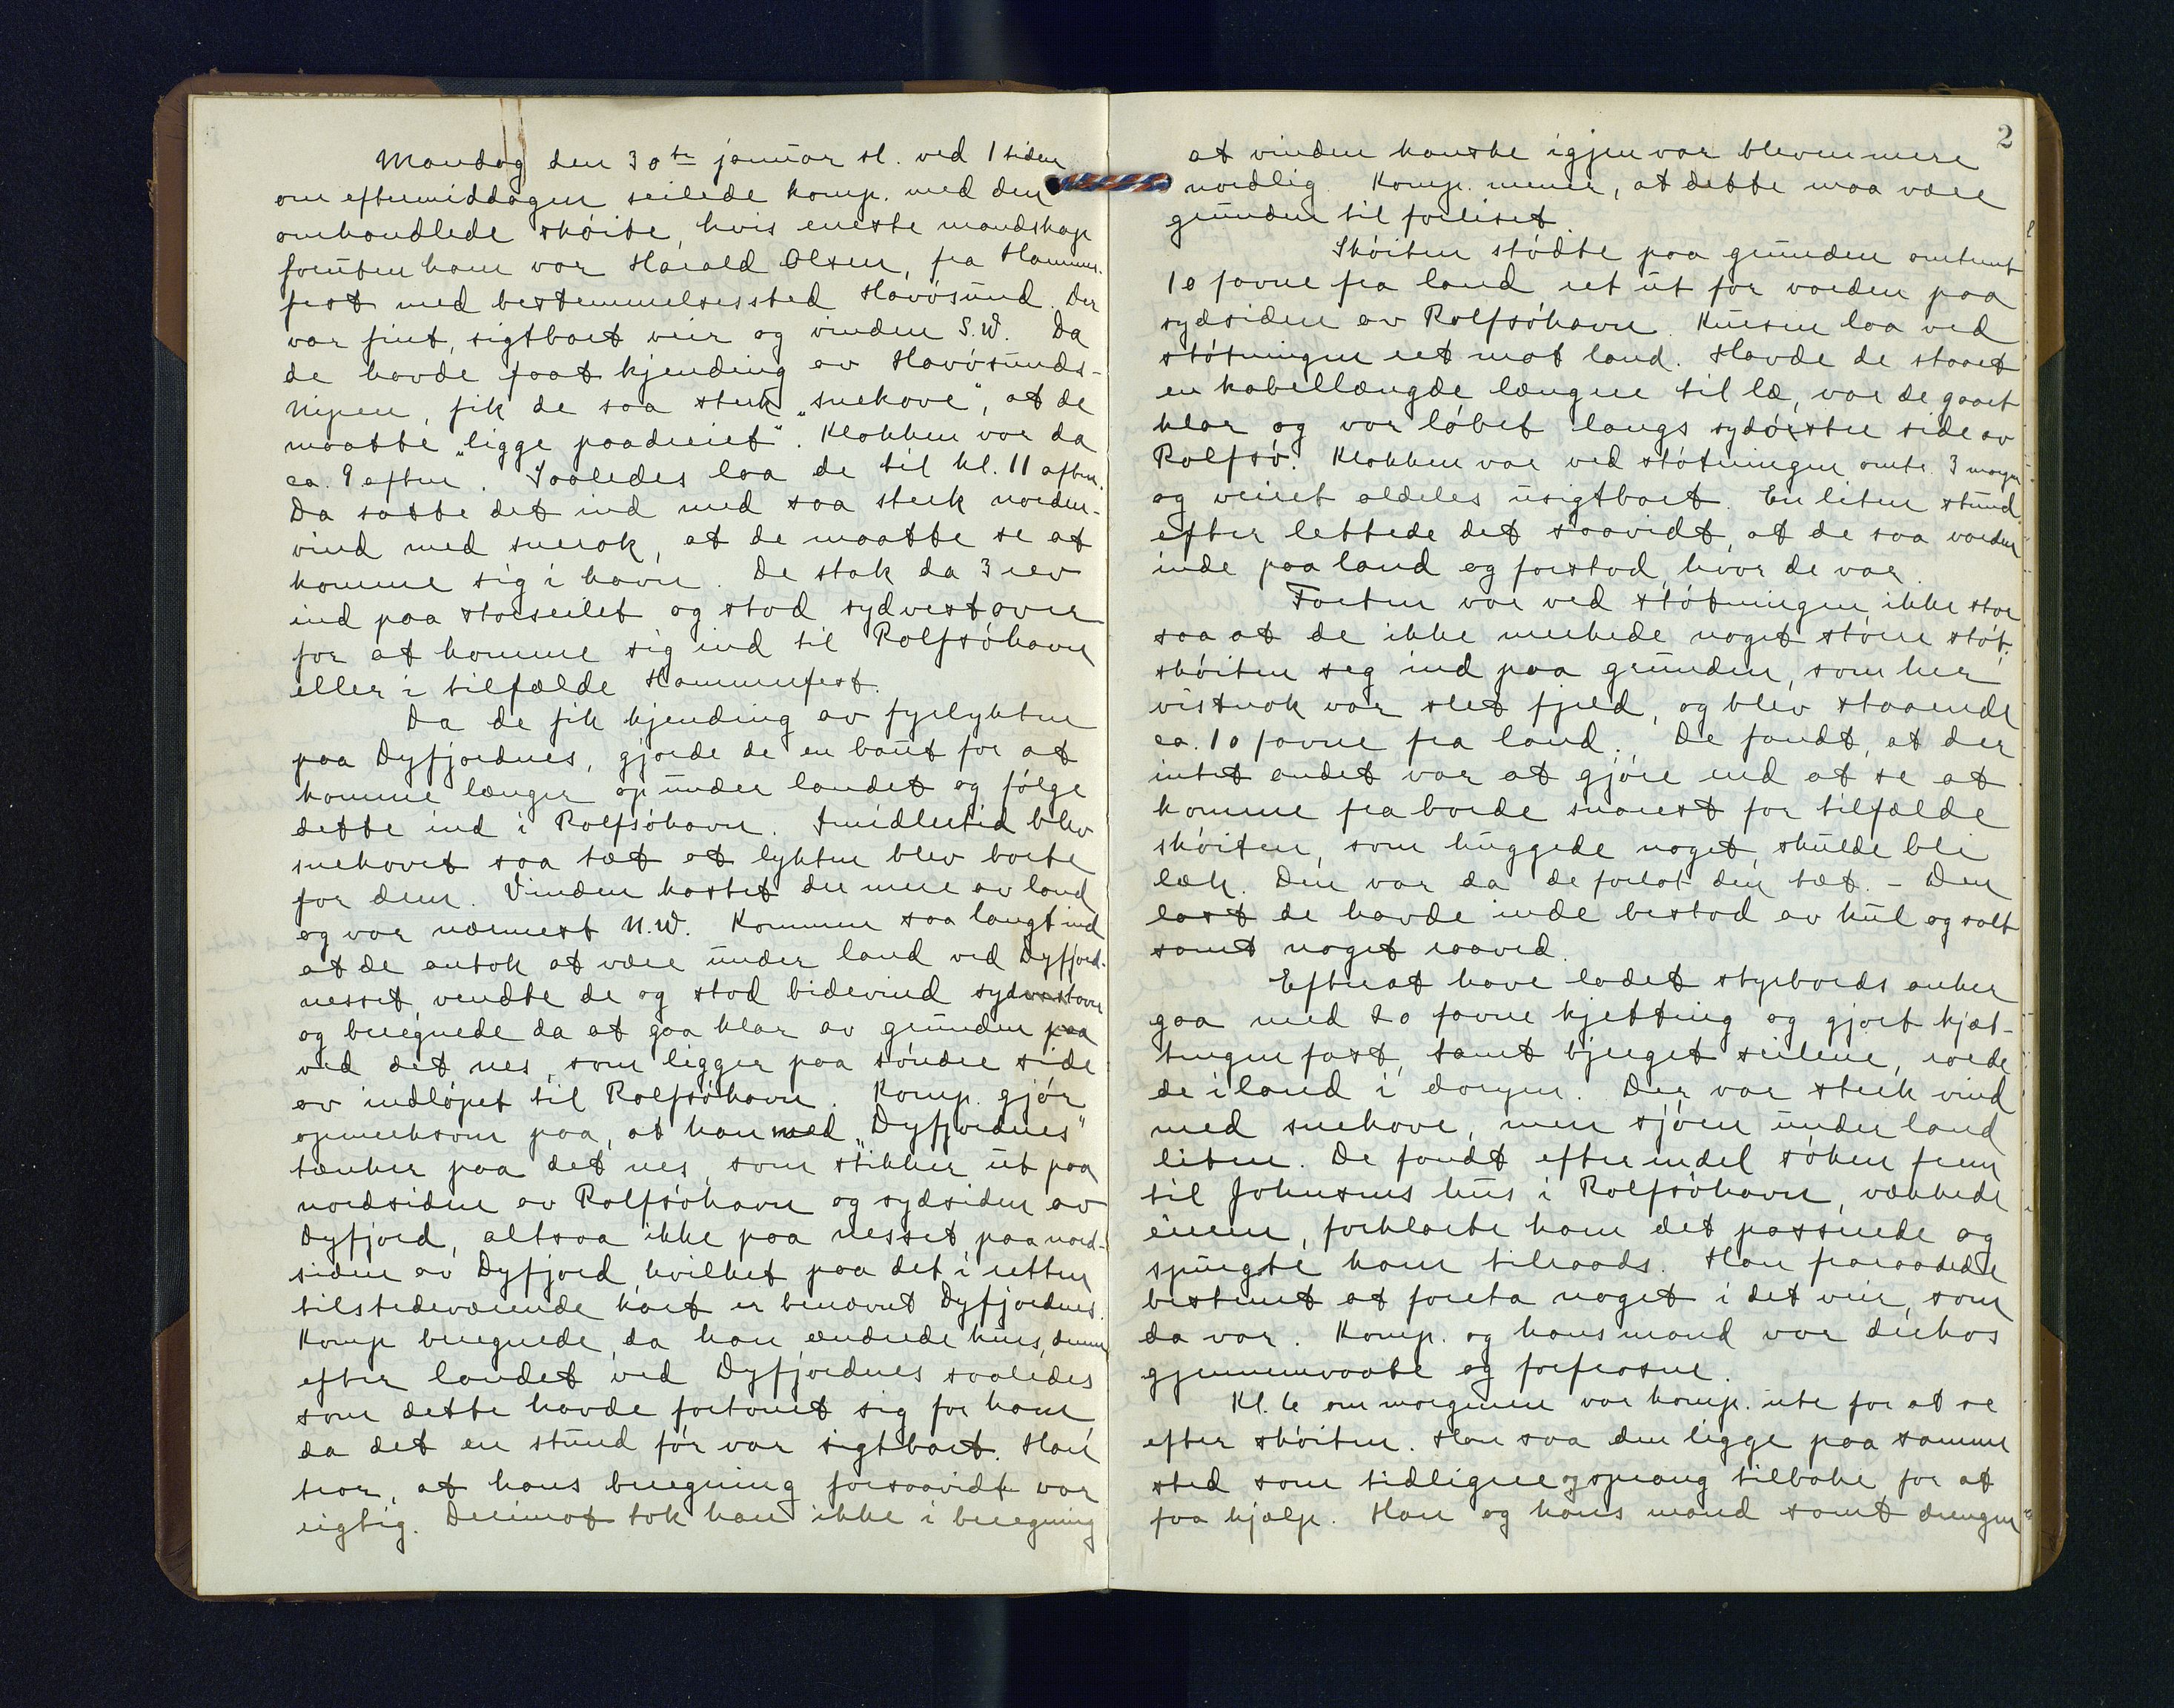 Mandag den 30te januar sl. ved 1 tiden
om eftermiddagen seilede komp. med den
omhandlede skøite, hvis eneste mandskap
foruten ham var Harald Olsen, fra Hammer-
fest med bestemmelsessted Havøsund. Der
var fint, sigtbart veir og vinden S.W. Da
de havde faat kjending av Havøsunds-
nipen, fik de saa sterk "snekave", at de
maatte "ligge paadreiet". Klokken var da
ca. 9 aften. Saaledes laa de til kl. 11 aften.
Da satte det ind med saa sterk norden-
vind med snerok, at de maatte se at
komme sig i havn. De stak da 3 rev
ind paa storseilet og stod sydvestover
for at komme sig ind til Rolfsøhavn
eller i tilfælde Hammerfest.
Da de fik kjending av fyrlykten
paa Dyfjordnes, gjorde de en baut for at
komme længer op under landet og følge
dette ind i Rolfsøhavn. Imidlertid blev
snekavet saa tæt at lykten blev borte
for dem. Vinden kastet der mere av land
og var nærmest N.W. Kommen saa langt ind
at de antok at være under land ved Dyfjord-
nesset, vendte de og stod bidevind sydvestover
og beregnede da at gaa klar av grunden paa
ved det nes, som ligger paa søndre side
av indløpet til Rolfsøhavn. Komp. gjør
opmerksom paa, at han med "Dyfjordnes"
tænker paa det nes, som stikker ut paa
nordsiden av Rolfsøhavn og sydsiden av
Dyfjord, altsaa ikke paa nesset paa nord-
siden av Dyfjord, hvilket paa det i retten
tilstedeværende kart er benævnt Dyfjordnes.
Komp beregnede, da han ændrede kurs, denne
efter landet ved Dyfjordnes saaledes
som dette havde fortonet sig for ham
da det en stund før var sigtbart. Han
tror, at hans beregning forsaavidt var
rigtig. Derimot tok han ikke i beregning
2
at vinden kanske igjen var bleven mere
nordlig. Komp. mener, at dette maa være
grunden til forliset.
Skøiten stødte paa grunden omtrent
10 favne fra land ret ut for varden paa
sydsiden av Rolfsøhavn. Kursen laa ved
støtningen ret mot land. Havde de staaet
en kabellængde længere til læ, var de gaaet
klar og var løbet langs sydøstre side av
Rolfsø. Klokken var ved støtningen omtr. 3 morgen
og veiret aldeles usigtbart. En liten stund
efter lettede det saavidt, at de saa varden
inde paa land og forstod, hvor de var.
Farten var ved støtningen ikke stor
saa at de ikke merkede noget større støt,
skøiten seg ind paa grunden, som her
vistnok var slet fjeld, og blev staaende
ca. 10 favne fra land. De fandt, at der
intet andet var at gjøre end at se at
komme fra borde snarest for tilfælde
skøiten, som huggede noget, skulde bli
læk. Den var da de forlot den tæt. - Den
last de havde inde bestod av kul og salt
samt noget raaved.
Efterat have ladet styrbords anker
gaa med 20 favne kjetting og gjort kjæt-
tingen fast, samt bjerget seilene, roede
de iland i doryen. Der var sterk vind
med snekave, men sjøen under land
liten. De fandt efter endel søken frem
til Johnsens hus i Rolfsøhavn, vækkede
eieren, forklarte ham det passerede og
spurgte ham tilraads. Han fraraadede
bestemt at foreta noget i det veir, som
da var. Komp. og hans mand var derhos
gjennemvaate og forfrosne.
Kl. 6 om morgenen var komp. ute for at se
efter skøiten. Han saa den ligge paa samme
sted som tidligere og sprang tilbake for at
faa hjælp. Han og hans mand samt drengen